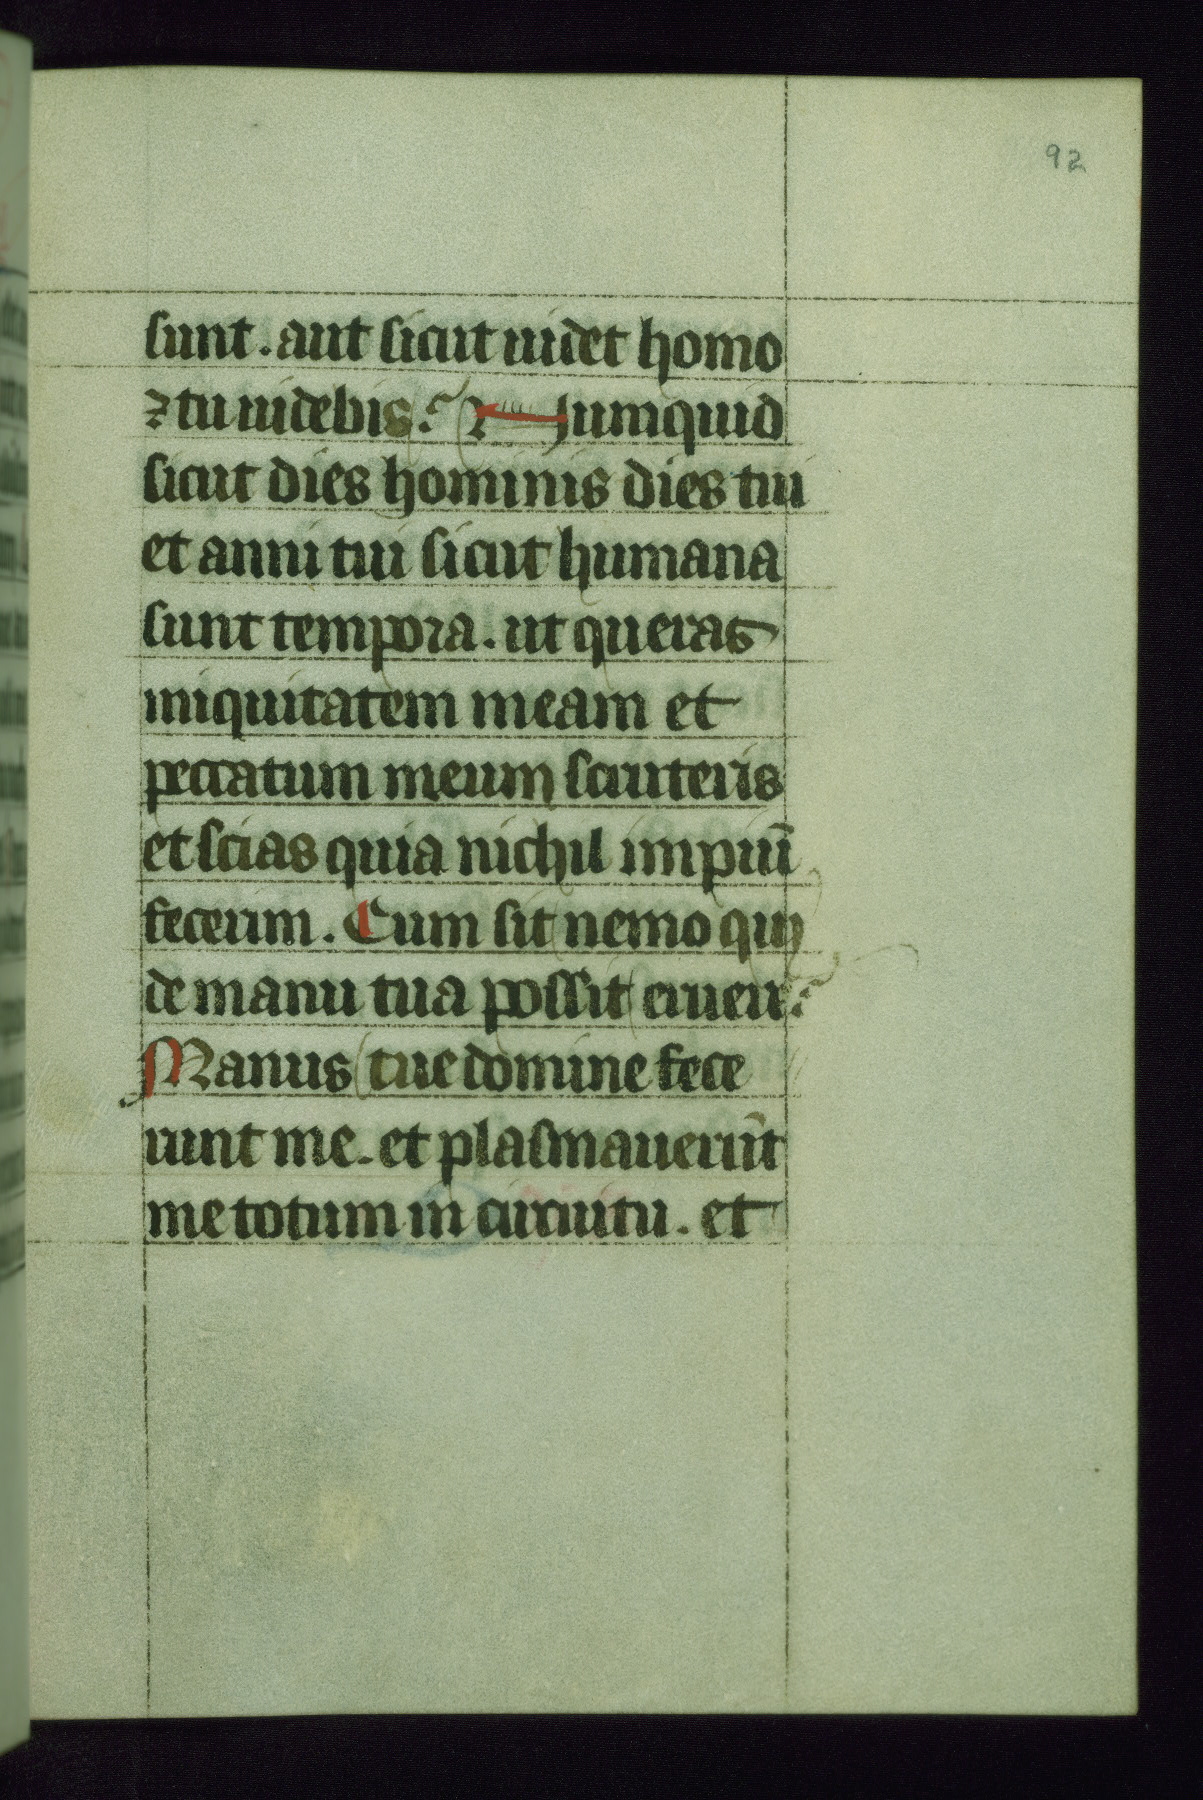 92
sunt. aut sicut uidet homo
⁊ tu uidebis? Numquid
sicut dies hominis dies tui
et anni tui sicut humana
sunt tempora. ut queras
iniquitatem meam et
peccatum meum scruteris
et scias quia nichil impiū
fecerim. Cum sit nemo qui
de manu tua possit eruere?
Manus tue domine fece
runt me. et plasmauerūt
me totum in circuitu. et